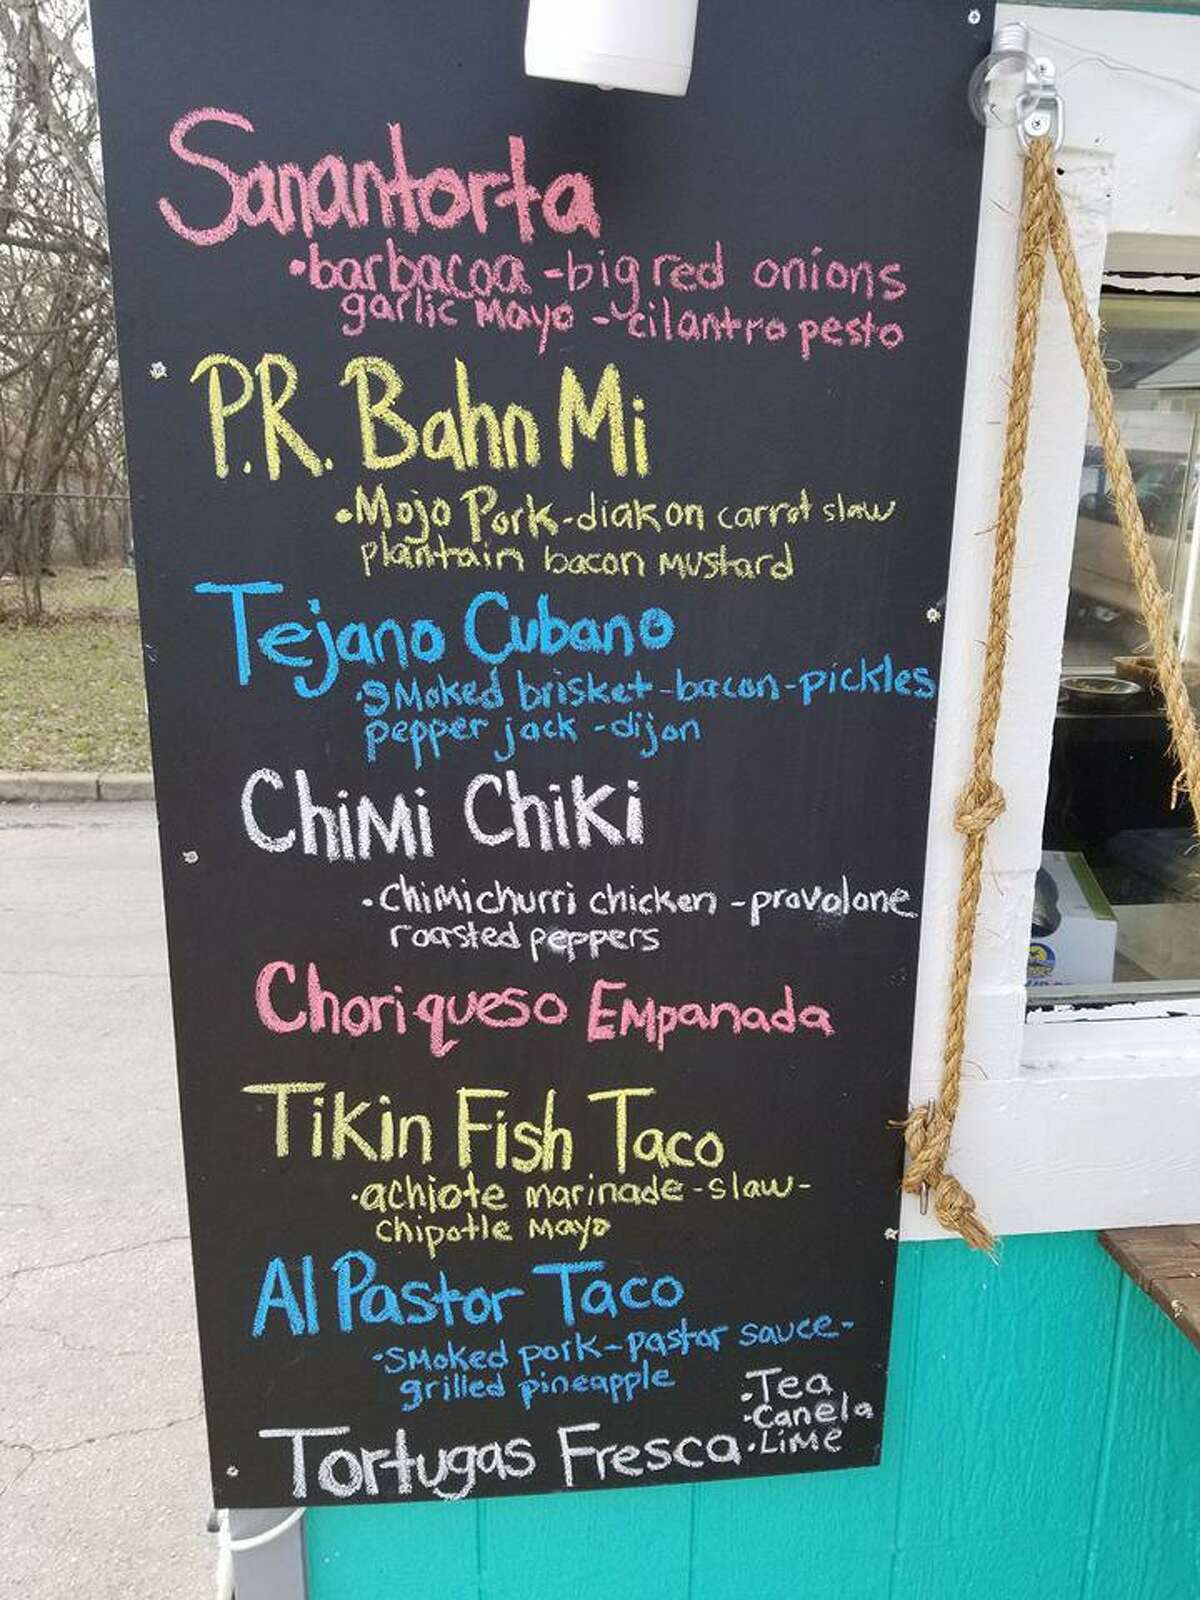 Sanantorta
•barbacoa - big red onions
garlic mayo - cilantro pesto
P.R. Bahn Mi
•Mojo Pork-diakon carrot slaw
plantain bacon mustard
Tejano Cubano
•smoked brisket-bacon-pickles
pepper jack - dijon
Chimi Chiki
•chimichurri chicken - provolone
roasted peppers
Choriqueso Empanada
Tikin Fish Taco
•achiote marinade-slaw-
chipotle mayo
Al Pastor Taco
•smoked pork-pastor sauce-
grilled pineapple
Tortugas Fresca
•Tea
•Canela
•Lime